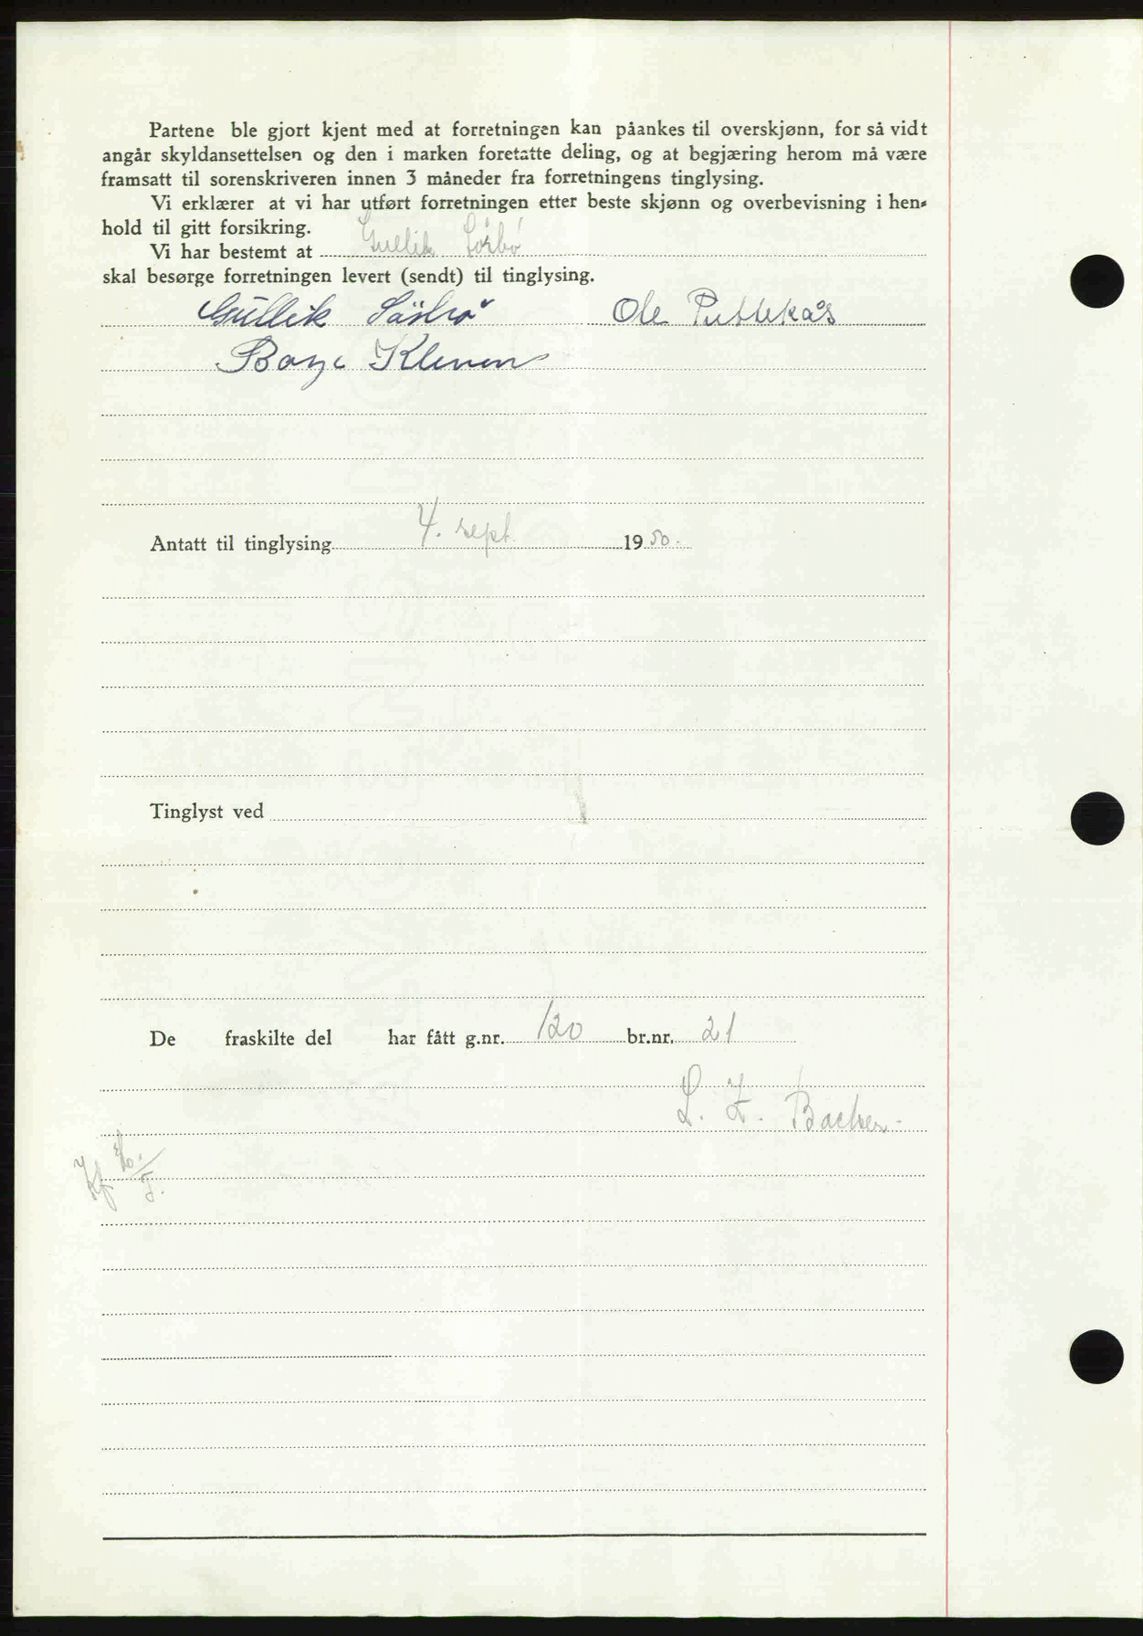 Partene ble gjort kjent med at forretningen kan påankes til overskjønn, for så vidt
angår skyldansettelsen og den i marken foretatte deling, og at begjæring herom må være
framsatt til sorenskriveren innen 3 måneder fra forretningens tinglysing.
Vi erklærer at vi har utført forretningen etter beste skjønn og overbevisning i hen-
hold til gitt forsikring.
Vi har bestemt at Gullik Sörbö
skal besørge forretningen levert (sendt) til tinglysing.
Gullik Sörbö Ole
Kleven
Antatt til tinglysing 4. sept. 1950.
Tinglyst ved
De fraskilte del har fått g.nr. 120 br.nr. 21
L. Z. Backer.